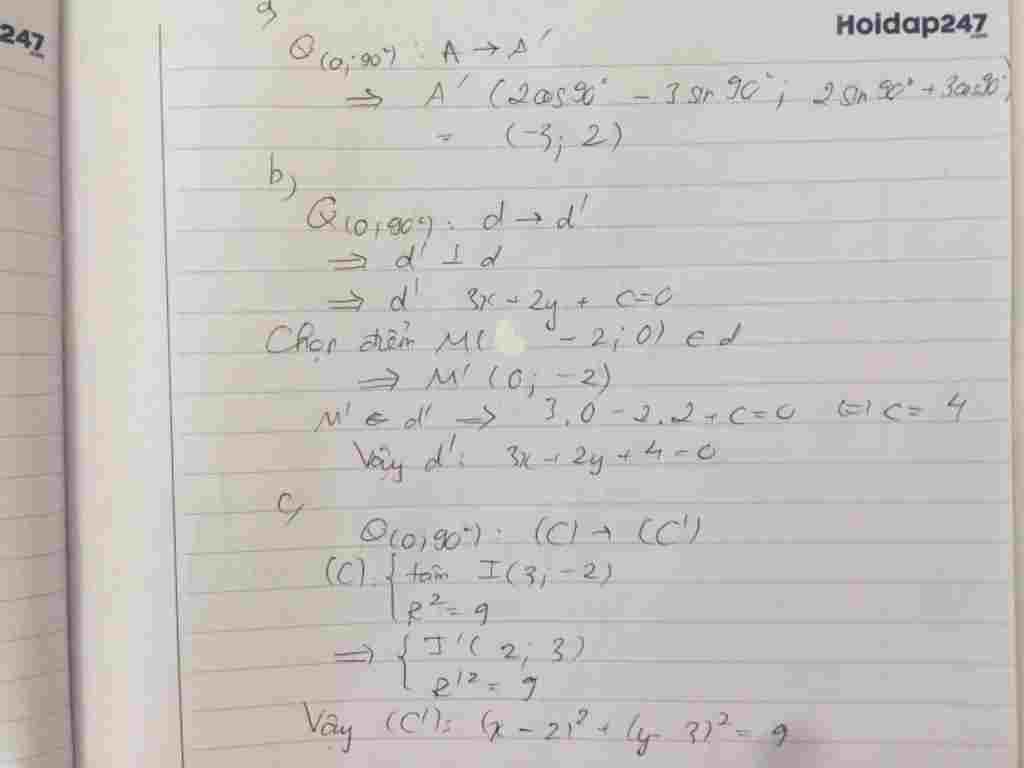 247
Hoidap247
.com
a)
Q(0; 90°) : A → A'
⇒ A' (2cos90° - 3sin90°; 2sin90° + 3cos90°)
= (-3; 2)
b)
Q(0; 90°) : d → d'
⇒ d' ⊥ d
⇒ d' 3x + 2y + c = 0
Chọn điểm M( -2; 0) ∈ d
⇒ M' (0; -2)
M' ∈ d' ⇒ 3.0 - 2.2 + c = 0 (=) c = 4
Vậy d': 3x + 2y + 4 = 0
c,
Q(0; 90°) : (C) → (C')
(C). { tâm I(3; -2)
R² = 9
⇒ { I'( 2; 3)
R'² = 9
Vậy (C'): (x - 2)² + (y - 3)² = 9